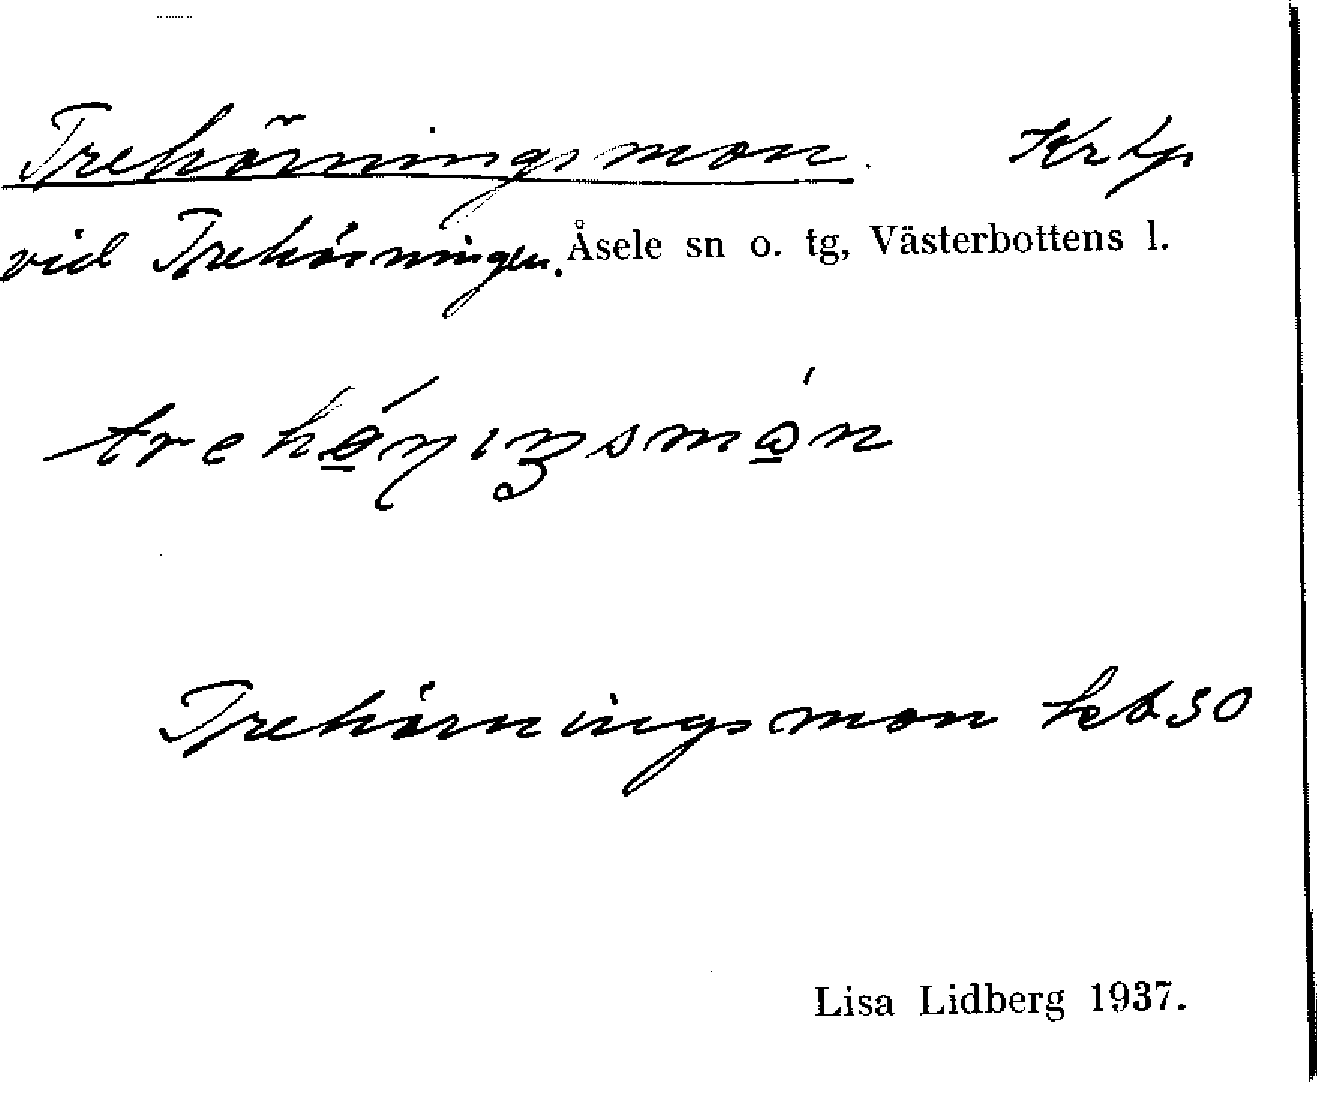 Trehörningsmon. Krtp
vid Trehörningen. Åsele sn o. tg, Västerbottens l.
Trehörningsmon kbt 50
Lisa Lidberg 1937.